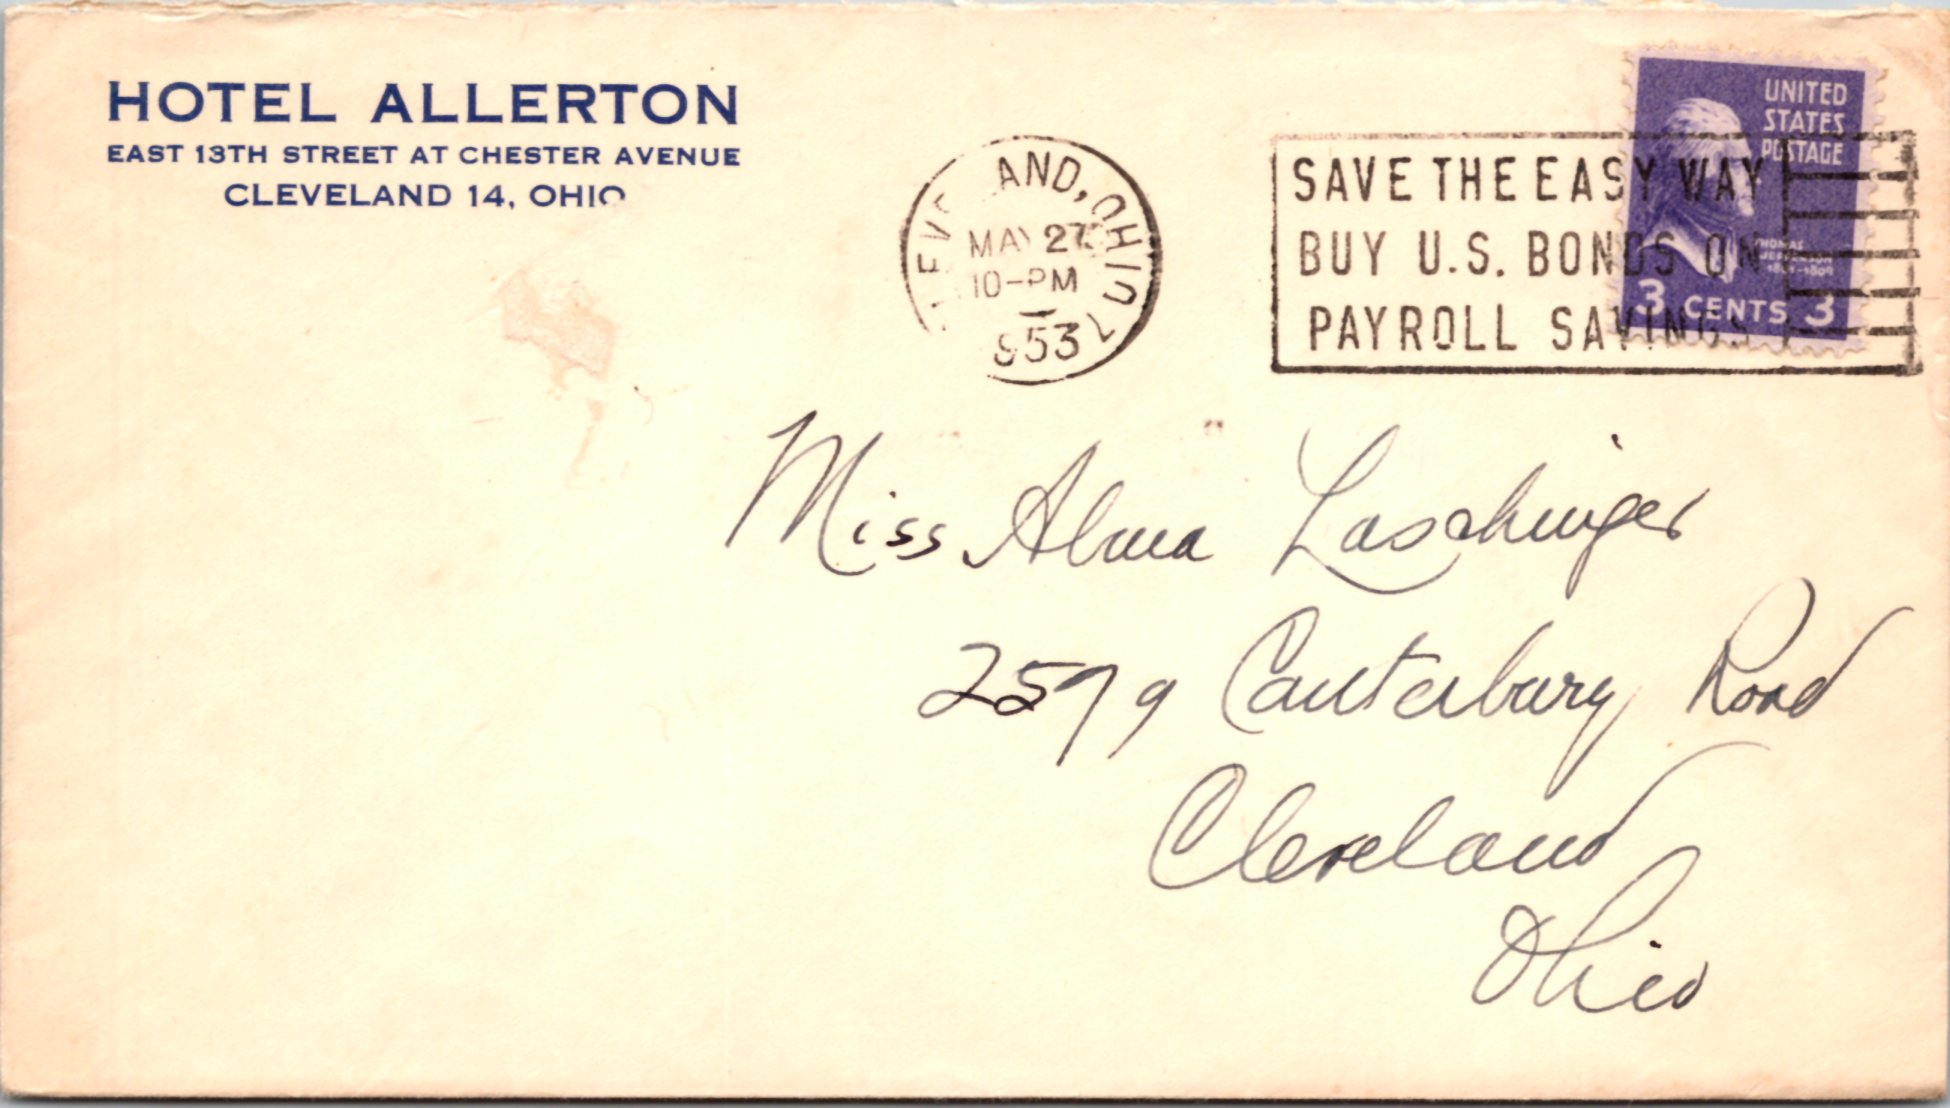 HOTEL ALLERTON
EAST 13TH STREET AT CHESTER AVENUE
CLEVELAND 14, OHIO
CLEVELAND, OHIO 7
MAY 27
10-PM
1953
SAVE THE EASY WAY
BUY U.S. BONDS ON
PAYROLL SAVINGS
UNITED
STATES
POSTAGE
THOMAS
JEFFERSON
1801-1809
3 CENTS 3
Miss Alma Laschinger
2579 Canterbury Road
Cleveland
Ohio